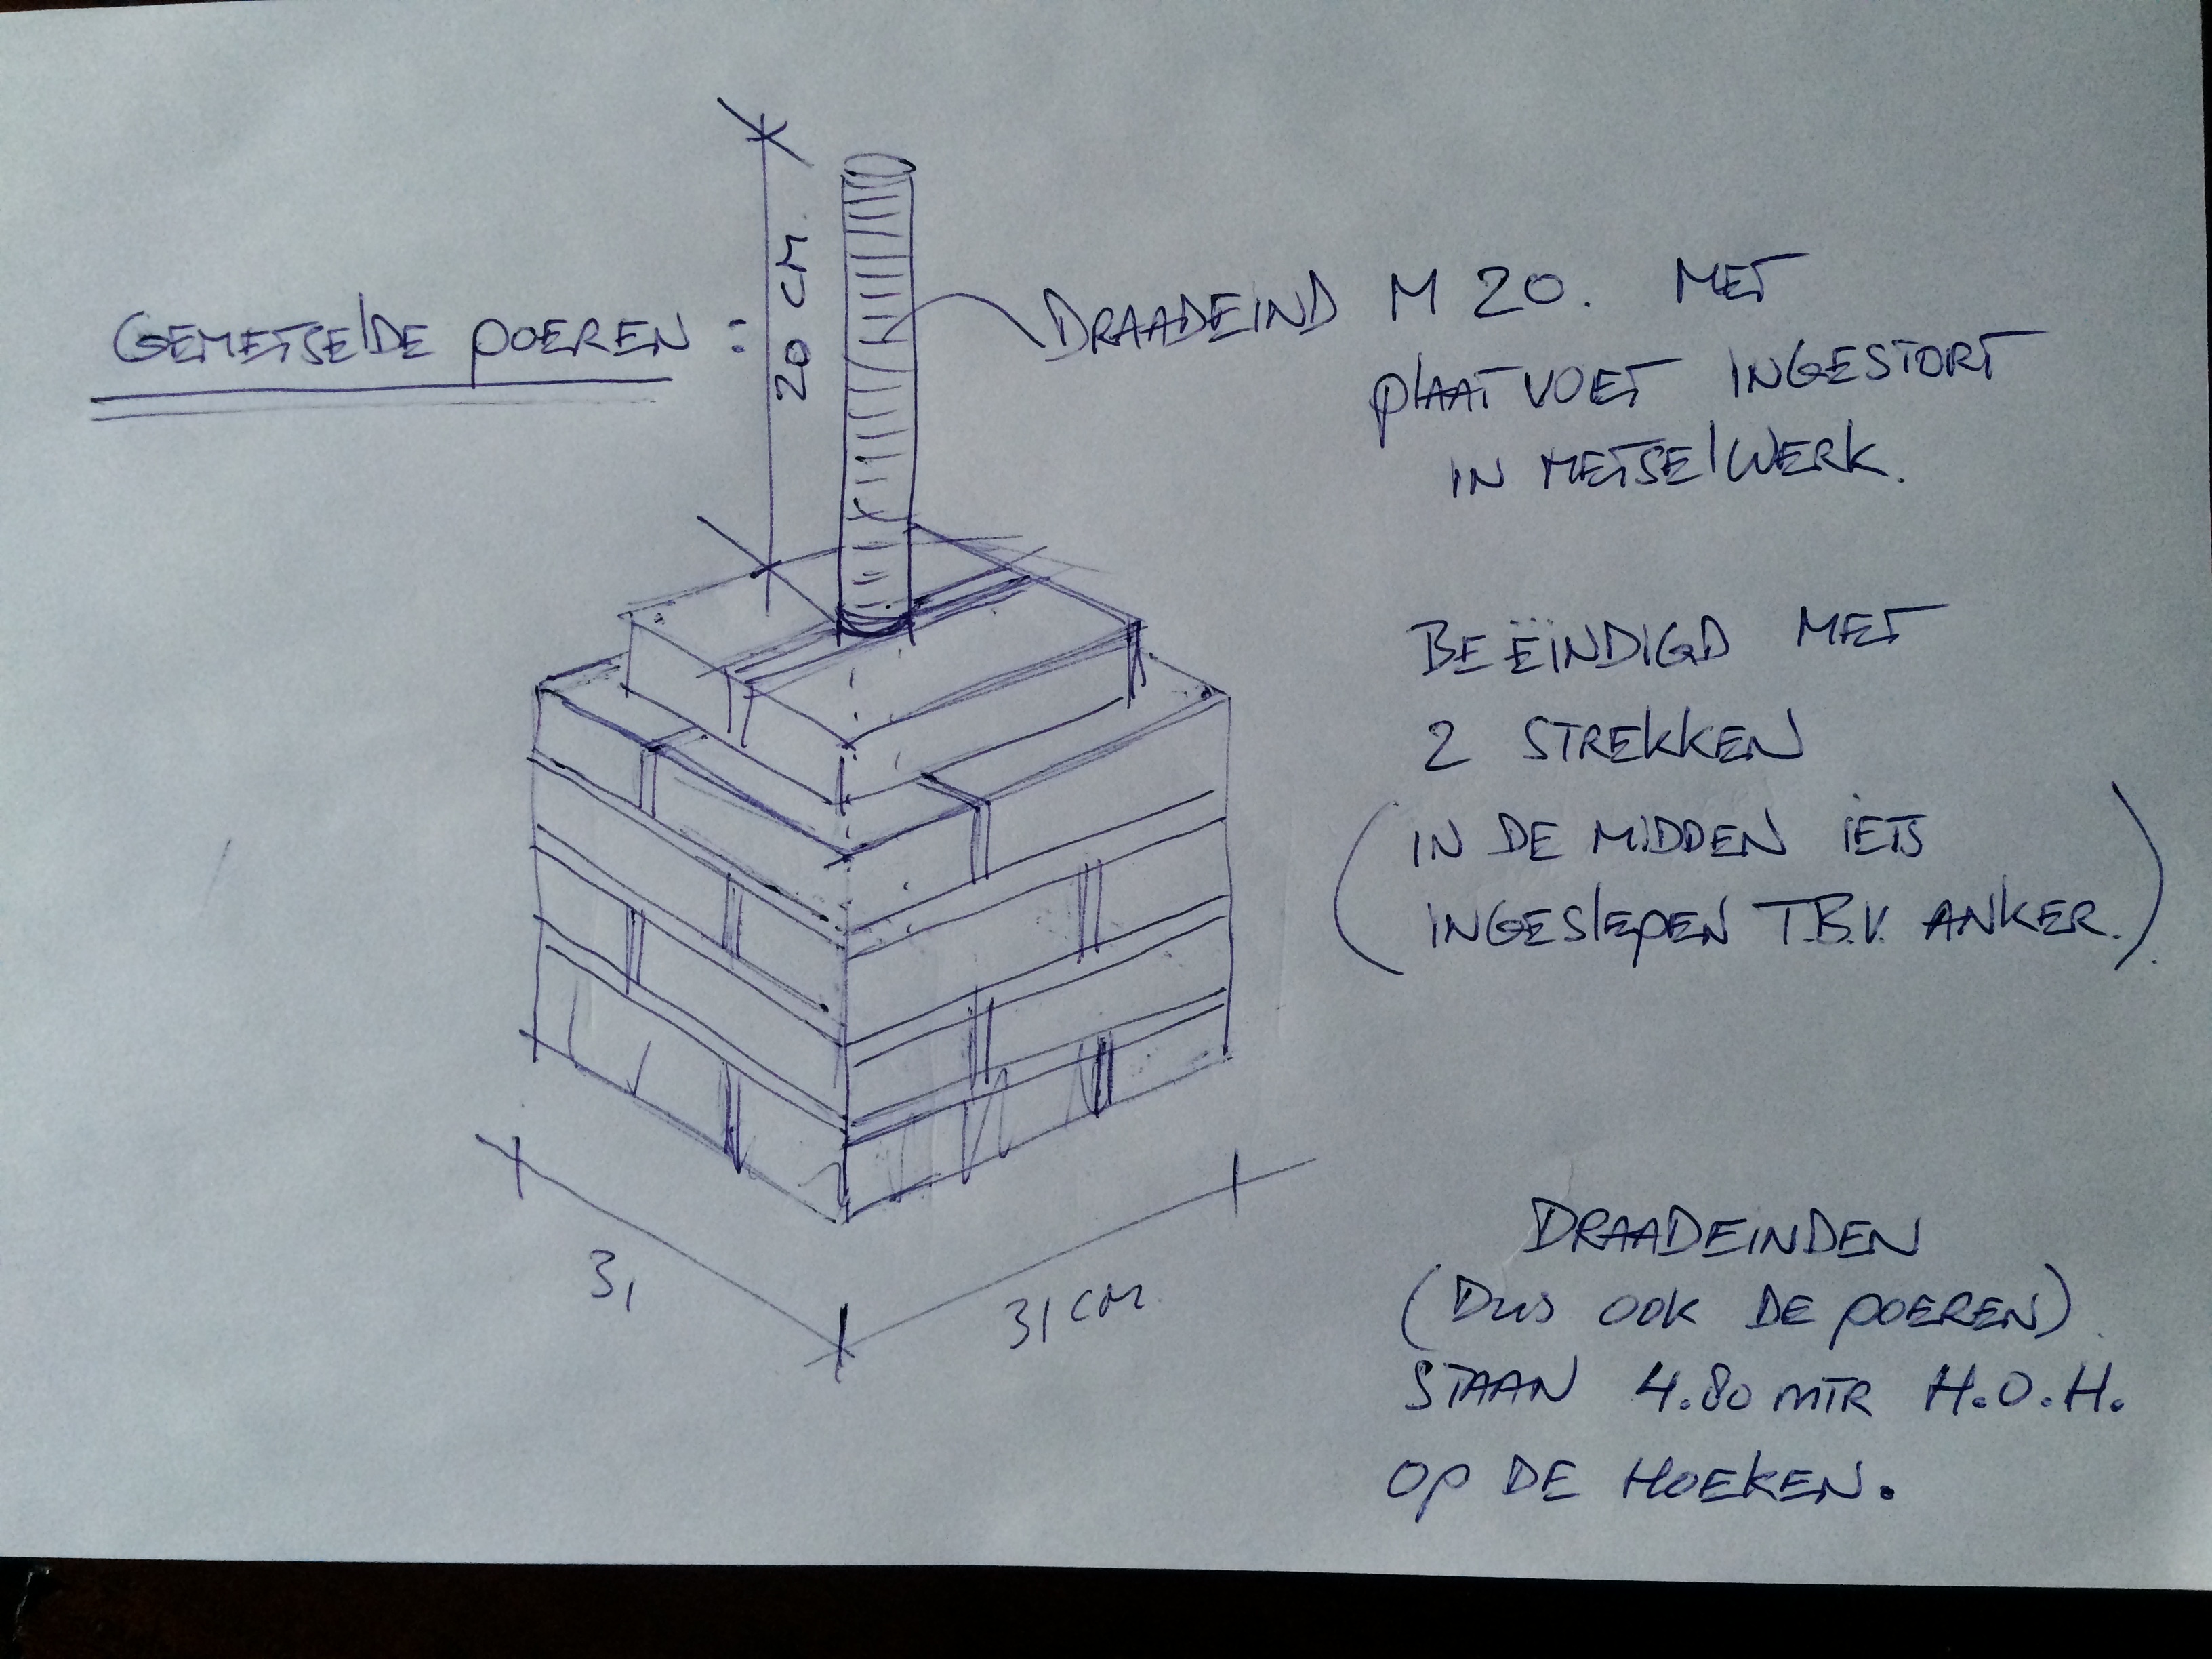 GEMETSELDE POEREN :
20 CM.
DRAADEIND M 20. MET
PLAATVOET INGESTORT
IN METSELWERK.
BEËINDIGD MET
2 STREKKEN
(IN DE MIDDEN IETS
INGESLEPEN T.B.V. ANKER.)
31
31 CM
DRAADEINDEN
(DUS OOK DE POEREN)
STAAN 4.80 MTR H.O.H.
OP DE HOEKEN.